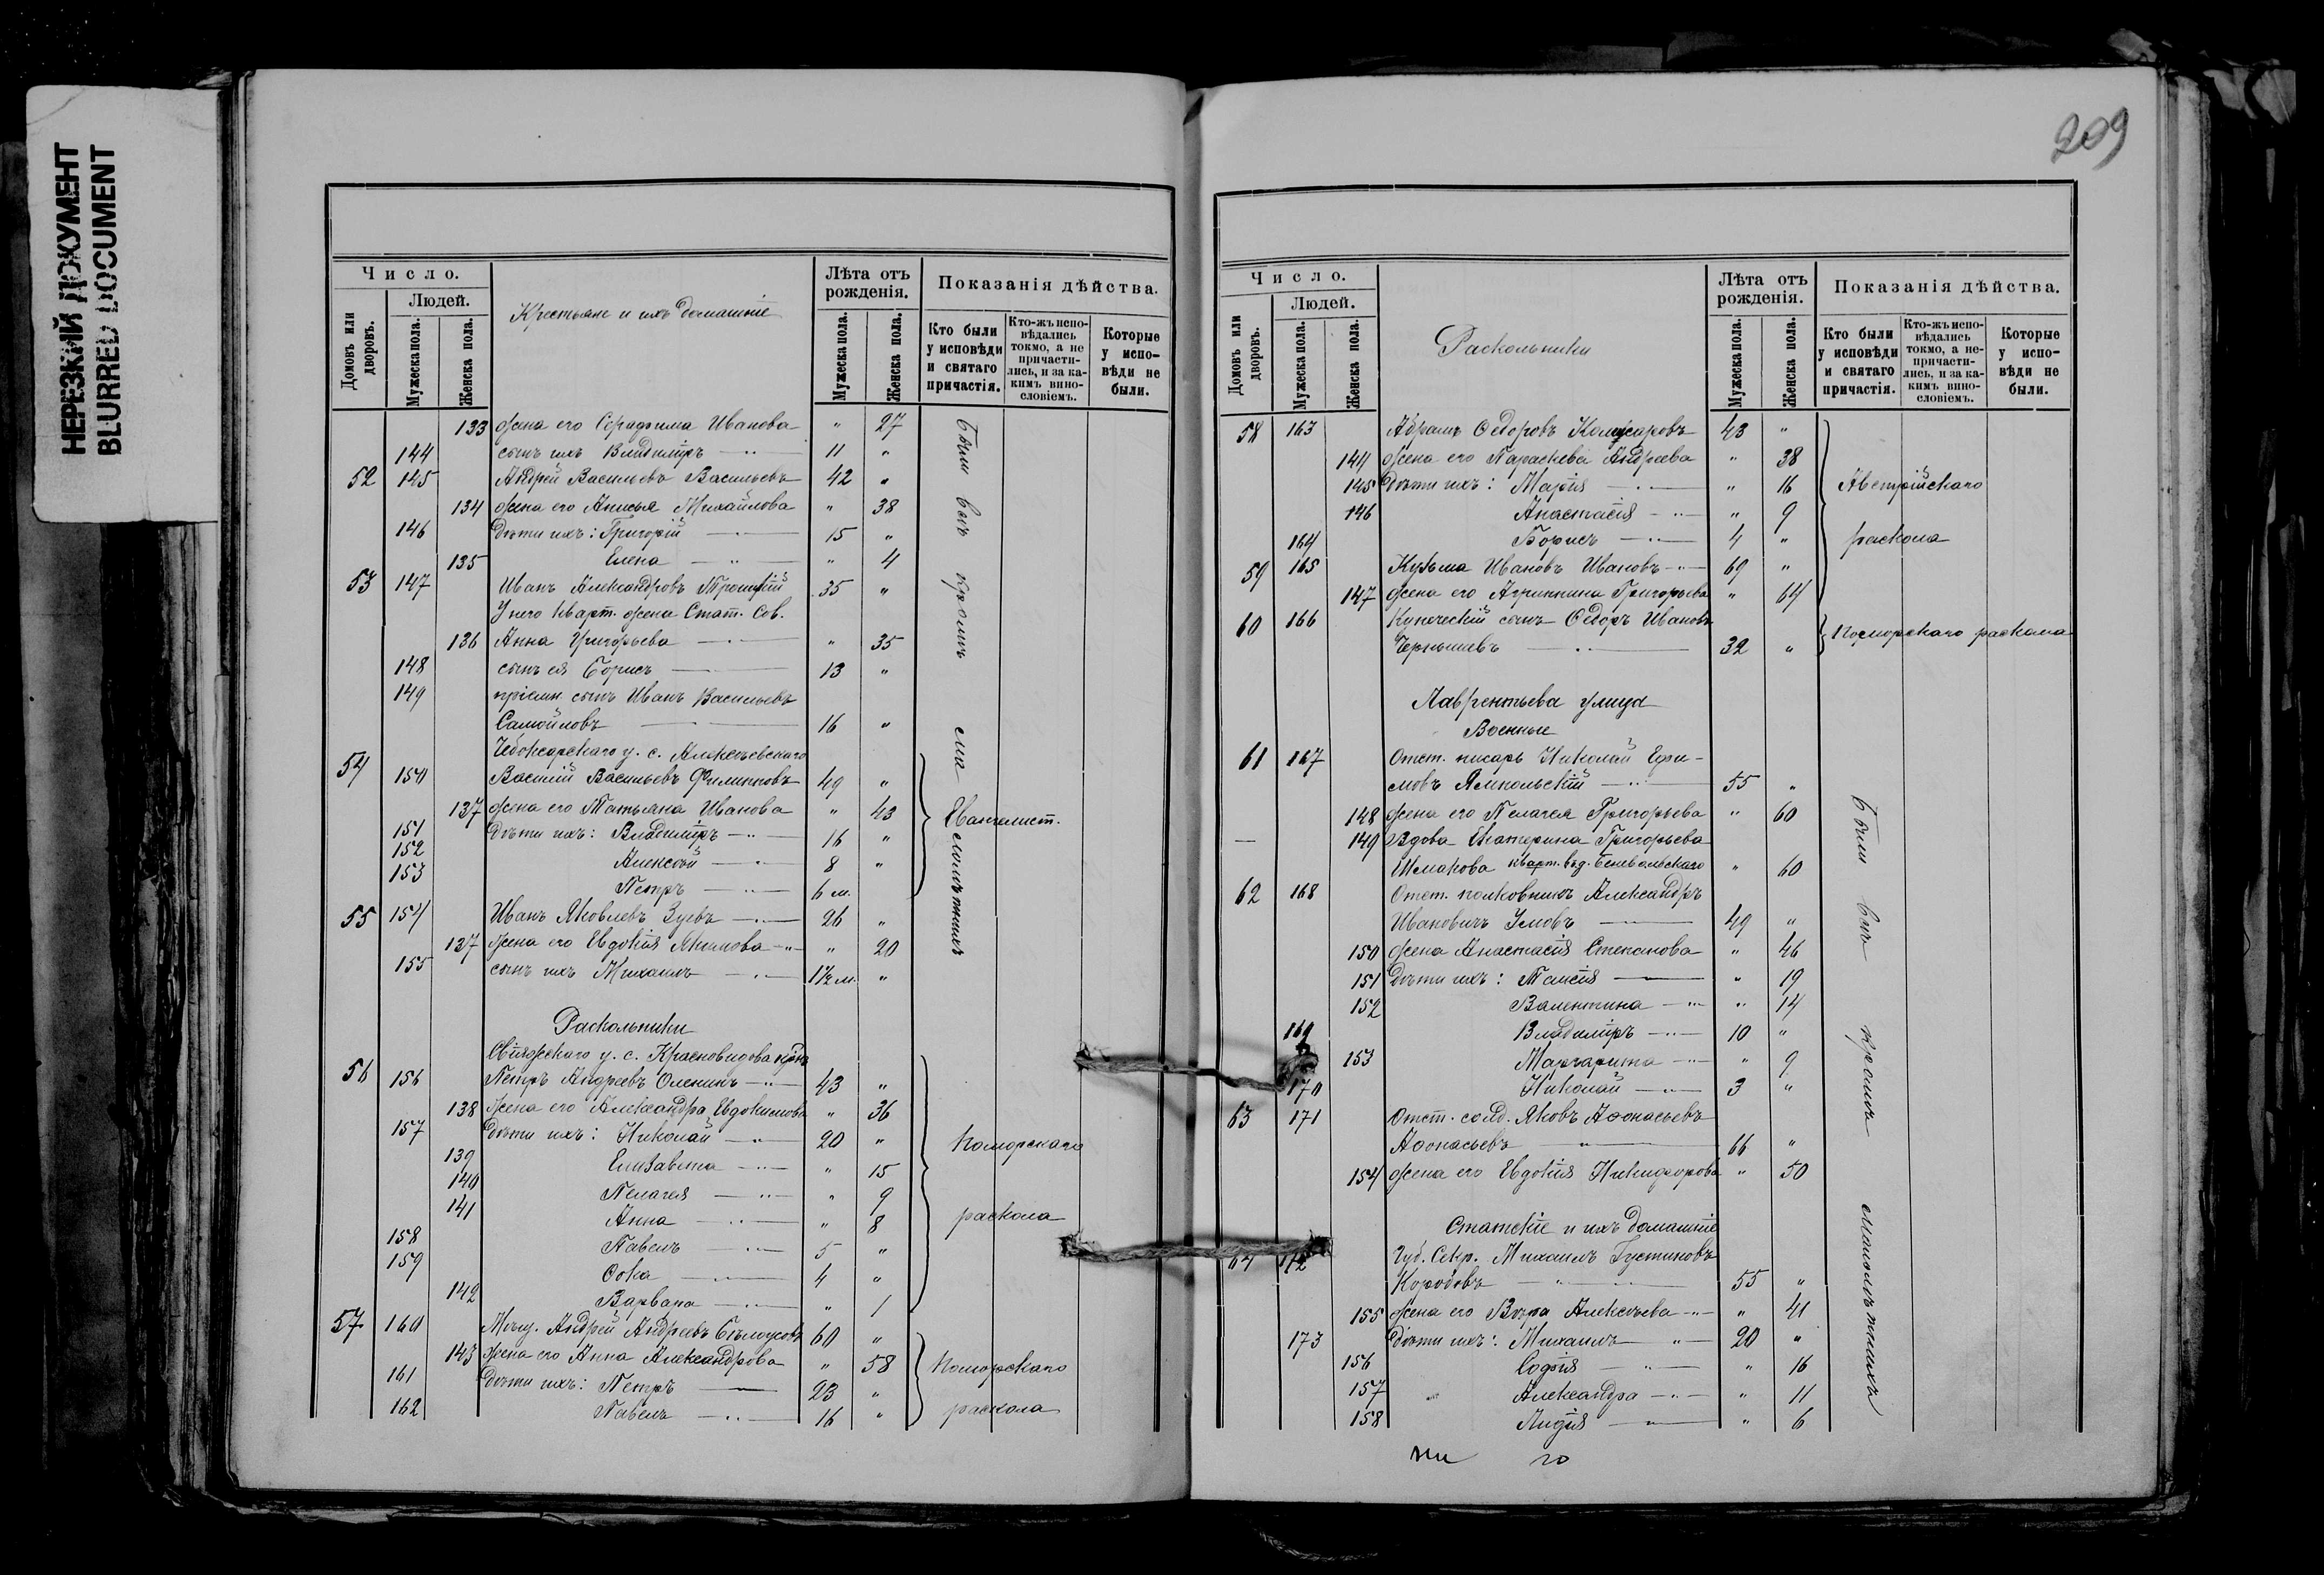 НЕРЕЗКИЙ ДОКУМЕНТ
BLURRED DOCUMENT
Число.
Людей.
Домовъ или дворовъ.
Мужеска пола.
Женска пола.
Крестьяне и ихъ домашніе
Лѣта отъ рожденія.
Мужеска пола.
Женска пола.
Показанія дѣйства.
Кто были у исповѣди и святаго причастія.
Кто-жъ исповѣдались токмо, а не причастились, и за какимъ винословіемъ.
Которые у исповѣди не были.
133 жена его Серафима Иванова " 27
144 сынъ ихъ Владиміръ 11 "
52 145 Андрей Васильевъ Васильевъ 42 "
134 жена его Анисья Михайлова " 38
146 дѣти ихъ: Григорій 15 "
135 Елена " 4
53 147 Иванъ Александровъ Троицкій 35 "
У него кварт. жена Стат. Сов.
136 Анна Григорьева " 35
148 сынъ ея Борисъ 13 "
149 пріемн. сынъ Иванъ Васильевъ
Самойловъ 16 "
Чебоксарскаго у. с. Алексѣевскаго
54 150 Василій Васильевъ Филипповъ 49 "
137 жена его Татьяна Иванова " 43
151 дѣти ихъ: Владиміръ 16 "
152 Алексѣй 8 "
153 Петръ 6 м.
Евангелист.
55 154 Иванъ Яковлевъ Зуевъ 26 "
137 жена его Евдокія Акимова " 20
155 сынъ ихъ Михаилъ 1½ м. "
Были всѣ кромѣ малолѣтнихъ
Раскольники
Свіяжскаго у. с. Красновидова кр-нъ
56 156 Петръ Андреевъ Оленинъ 43 "
138 жена его Александра Евдокимова " 36
157 дѣти ихъ: Николай 20 "
139 Елизавета " 15
140 Пелагея " 9
141 Анна " 8
158 Павелъ 5 "
159 Ѳока 4 "
142 Варвара " 1
Поморскаго
раскола
57 160 Мѣщ. Андрей Андреевъ Бѣлоусовъ 60 "
143 жена его Анна Александрова " 58
161 дѣти ихъ: Петръ 23 "
162 Павелъ 16 "
Поморскаго
раскола
209
Число.
Людей.
Домовъ или дворовъ.
Мужеска пола.
Женска пола.
Раскольники
Лѣта отъ рожденія.
Мужеска пола.
Женска пола.
Показанія дѣйства.
Кто были у исповѣди и святаго причастія.
Кто-жъ исповѣдались токмо, а не-причастились, и за какимъ винословіемъ.
Которые у исповѣди не были.
58 163 Абрамъ Ѳедоровъ 43 "
144 жена его Параскева Андреева " 38
145 дѣти ихъ: Марія " 16
146 Анастасія " 9
164 Борисъ 4 "
59 165 Кузьма Ивановъ Ивановъ 69 "
147 жена его Агриппина Григорьева " 64
Австрійскаго
раскола
60 166 Купеческій сынъ Ѳедоръ Ивановъ
Чернышевъ 32 "
Поморскаго раскола
Лаврентьева улица
Военные
61 167 Отст. писарь Николай Ефи-
мовъ Ямпольскій 55 "
148 жена его Пелагея Григорьева " 60
— 149 Вдова Екатерина Григорьева
Шмакова кварт. " 60
62 168 Отст. полковникъ Александръ
Ивановичъ Умовъ 49 "
150 жена Анастасія Степанова " 46
151 дѣти ихъ: Таисія " 19
152 Валентина " 14
169 Владиміръ 10 "
153 Маргарита " 9
170 Николай 3 "
63 171 Отст. солд. Яковъ Аѳонасьевъ
Аѳонасьевъ 66 "
154 жена его Евдокія Никифорова " 50
Статскіе и ихъ домашніе
64 172 Губ. Секр. Михаилъ Густиновъ
Коробовъ 55 "
155 жена его Вѣра Алексѣева " 41
173 дѣти ихъ: Михаилъ 20 "
156 Софія " 16
157 Александра " 11
158 Лидія " 6
Были всѣ кромѣ малолѣтнихъ